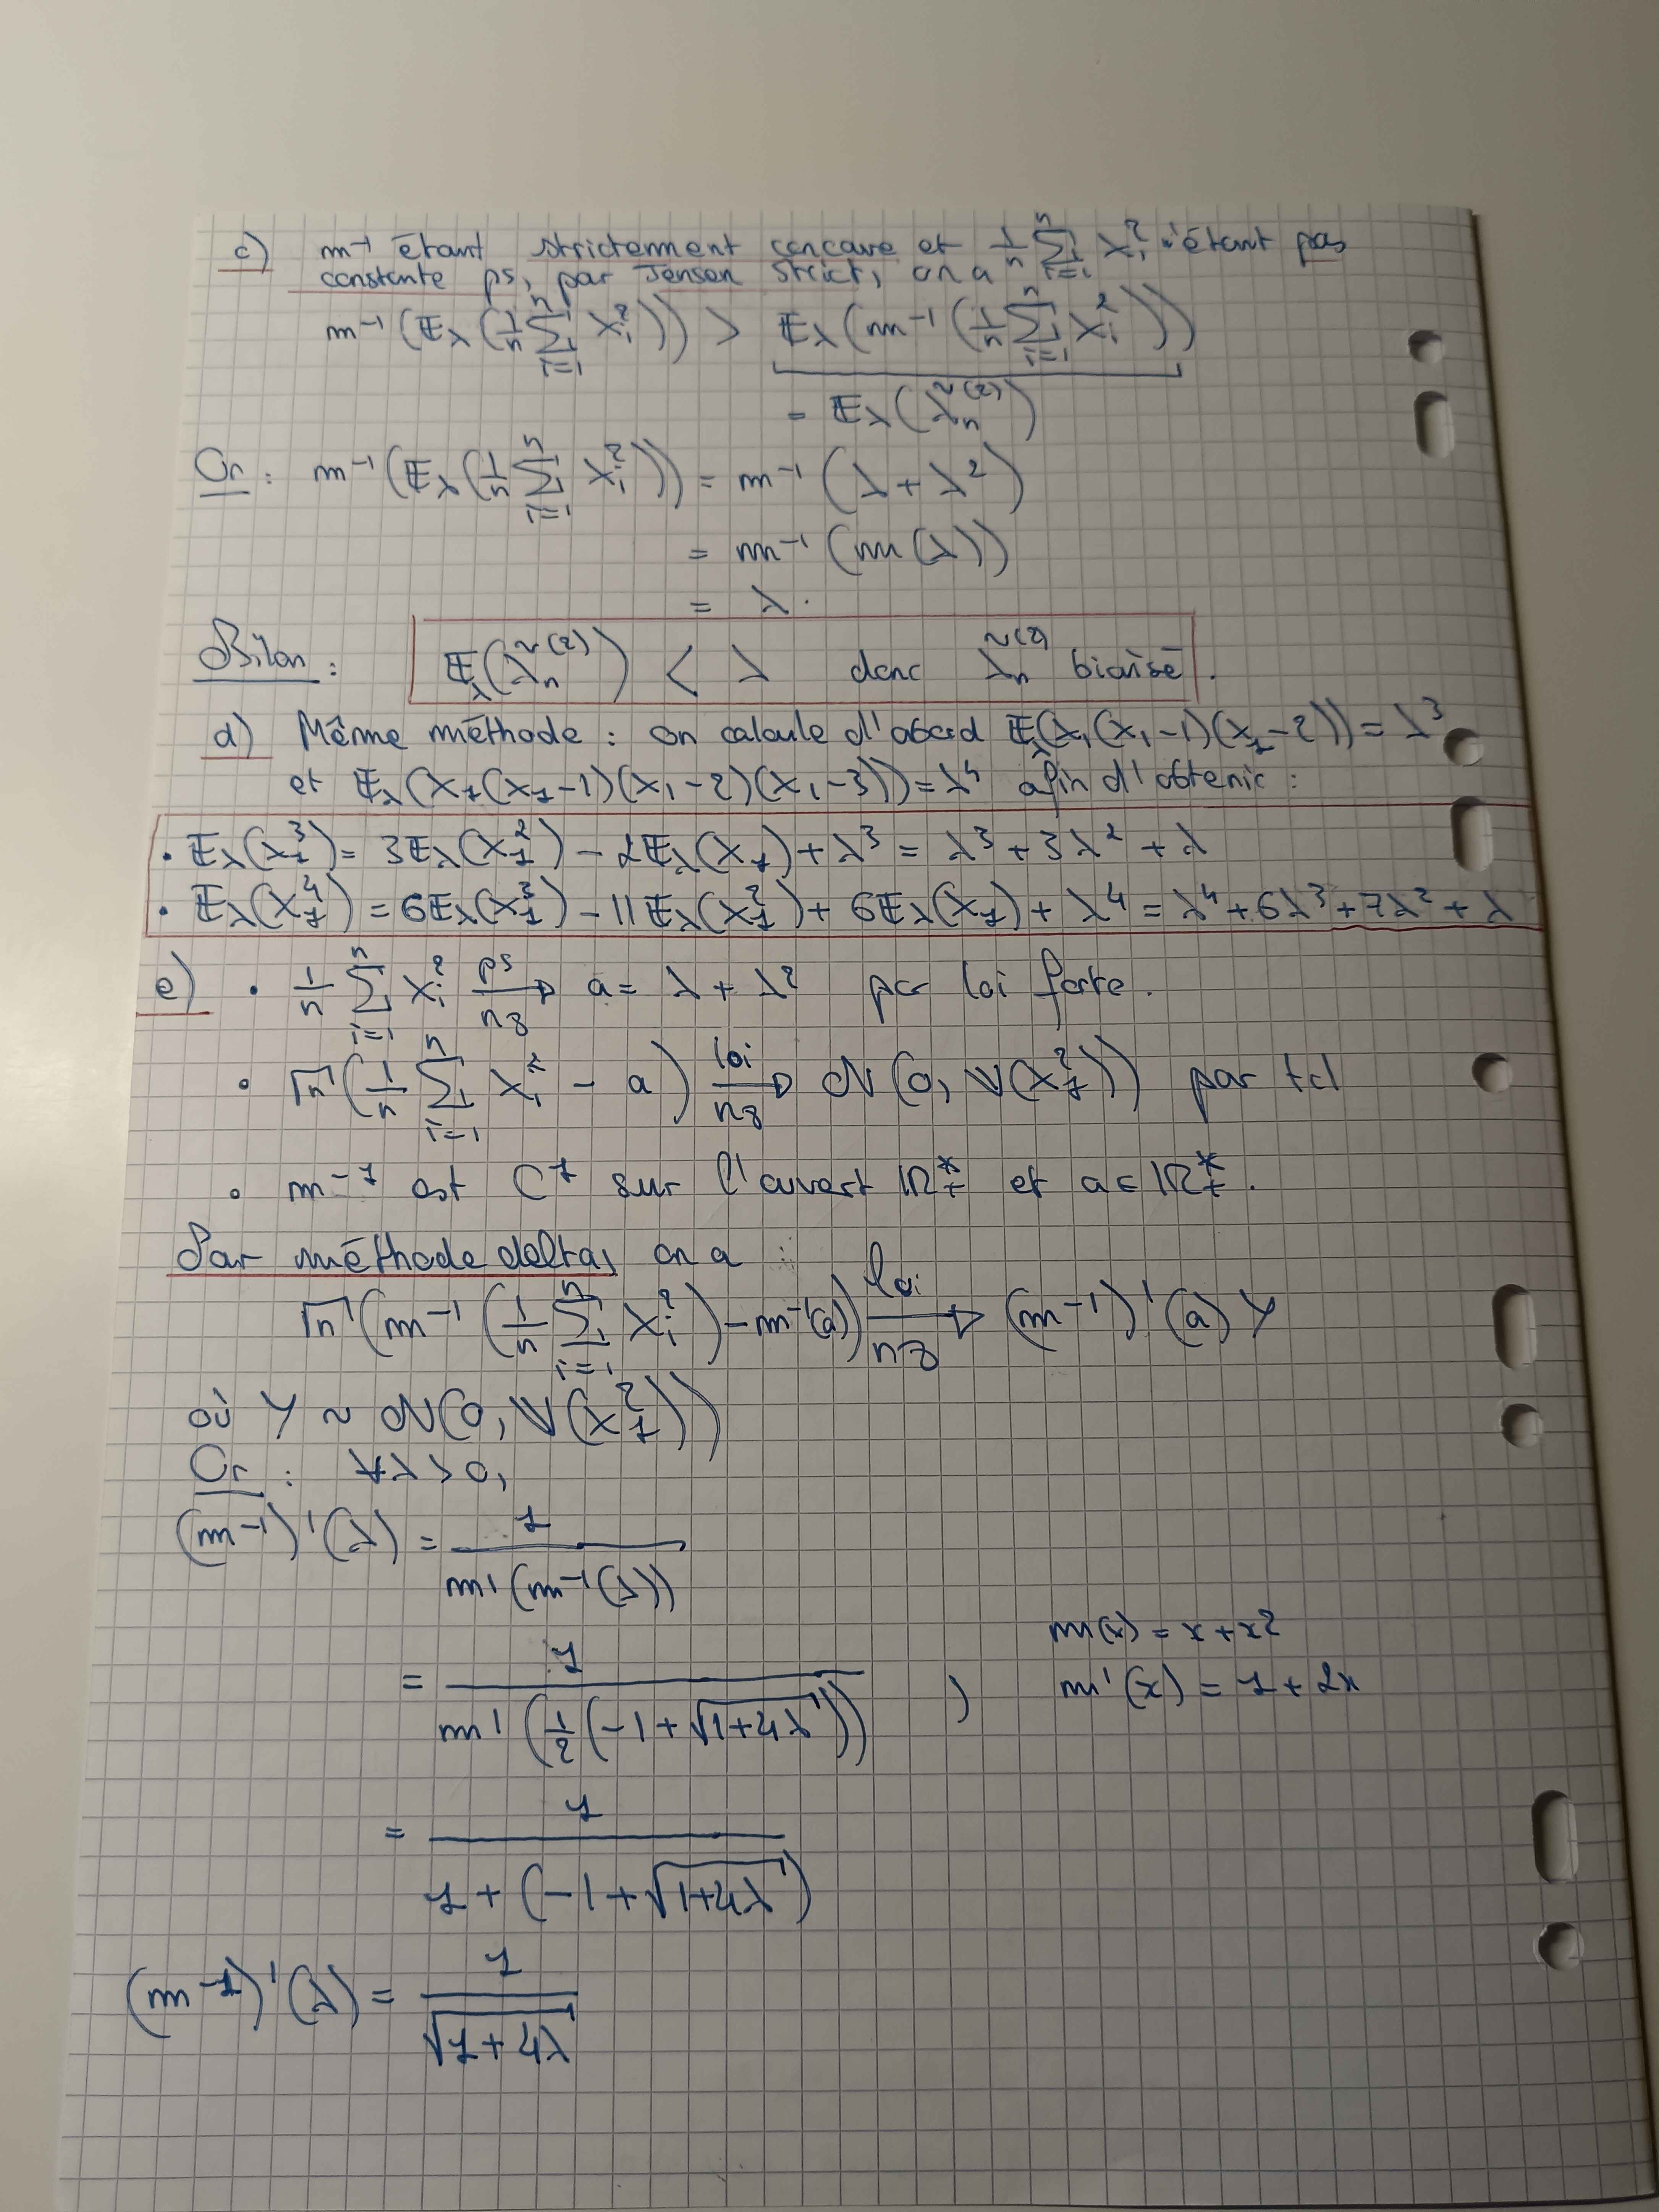 c) m⁻¹ étant strictement concave et 1/n ∑_{i=1}^n X_i² n'étant pas
constante ps, par Jensen strict, on a
m⁻¹(𝔼_λ(1/n ∑_{i=1}^n X_i²)) > 𝔼_λ(m⁻¹(1/n ∑_{i=1}^n X_i²))
= 𝔼_λ(λ̃_n^(2))
Or : m⁻¹(𝔼_λ(1/n ∑_{i=1}^n X_i²)) = m⁻¹(λ + λ²)
= m⁻¹(m(λ))
= λ.
Bilan : 𝔼_λ(λ̃_n^(2)) < λ donc λ̃_n^(2) biaisé.
d) Même méthode : on calcule d'abord 𝔼_λ(X₁(X₁-1)(X₁-2)) = λ³
et 𝔼_λ(X₁(X₁-1)(X₁-2)(X₁-3)) = λ⁴ afin d'obtenir :
• 𝔼_λ(X₁³) = 3𝔼_λ(X₁²) - 2𝔼_λ(X₁) + λ³ = λ³ + 3λ² + λ
• 𝔼_λ(X₁⁴) = 6𝔼_λ(X₁³) - 11𝔼_λ(X₁²) + 6𝔼_λ(X₁) + λ⁴ = λ⁴ + 6λ³ + 7λ² + λ
e) • 1/n ∑_{i=1}^n X_i² →ps n∞ a = λ + λ² par loi forte.
• √n(1/n ∑_{i=1}^n X_i² - a) →loi n∞ 𝒩(0, 𝕍(X₁²)) par tcl
• m⁻¹ est C¹ sur l'ouvert ℝ₊* et a ∈ ℝ₊*.
Par méthode delta, on a :
√n(m⁻¹(1/n ∑_{i=1}^n X_i²) - m⁻¹(a)) →loi n∞ (m⁻¹)'(a) Y
où Y ~ 𝒩(0, 𝕍(X₁²))
Or : ∀λ > 0,
(m⁻¹)'(λ) = 1/(m'(m⁻¹(λ)))
= 1/(m'(1/2(-1 + √(1+4λ)))) )
m(x) = x + x²
m'(x) = 1 + 2x
= 1/(1 + (-1 + √(1+4λ)))
(m⁻¹)'(λ) = 1/√(1+4λ)